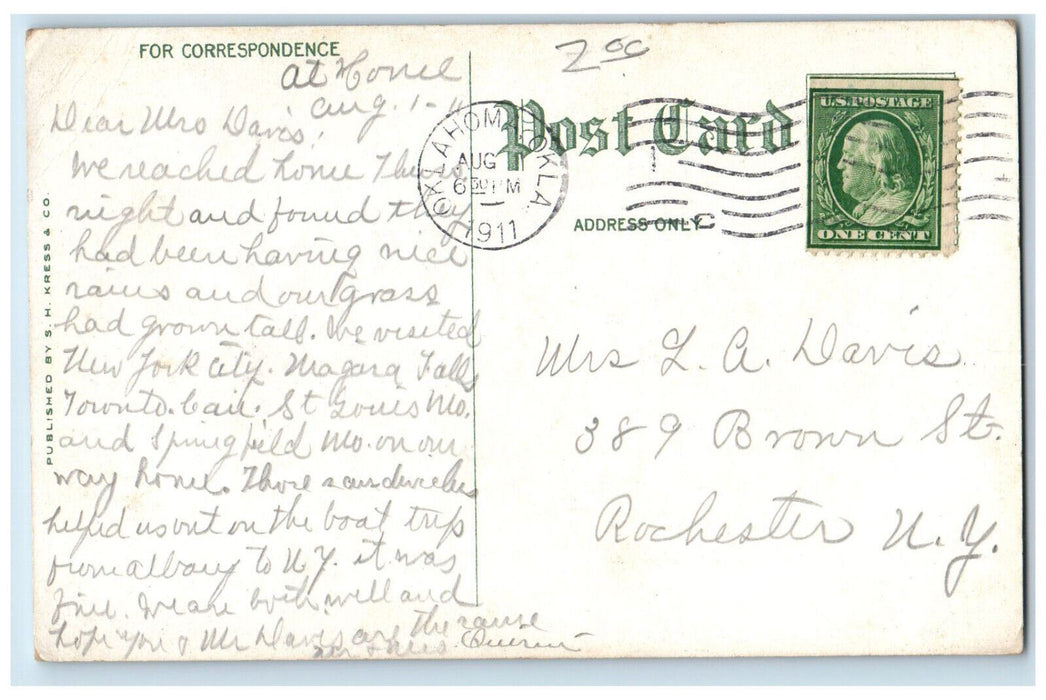 FOR CORRESPONDENCE
at Home
Aug. 1-11
Dear Mrs Davis,
We reached home Thurs
night and found they
had been having nice
rains and our grass
had grown tall. We visited
New York City. Niagara Falls
Toronto. Can. St Louis Mo.
and Springfield Mo. on our
way home. Those sandwiches
helped us out on the boat trip
from Albany to N.Y. it was
fine. We are both well and
hope you & Mr Davis are the same
Mr & Mrs.
PUBLISHED BY S. H. KRESS & CO.
2 00
Post Card
ADDRESS ONLY
OKLAHOMA OKLA.
AUG
6 30 PM
1911
U.S. POSTAGE
ONE CENT
Mrs L. A. Davis
389 Brown St.
Rochester N.Y.